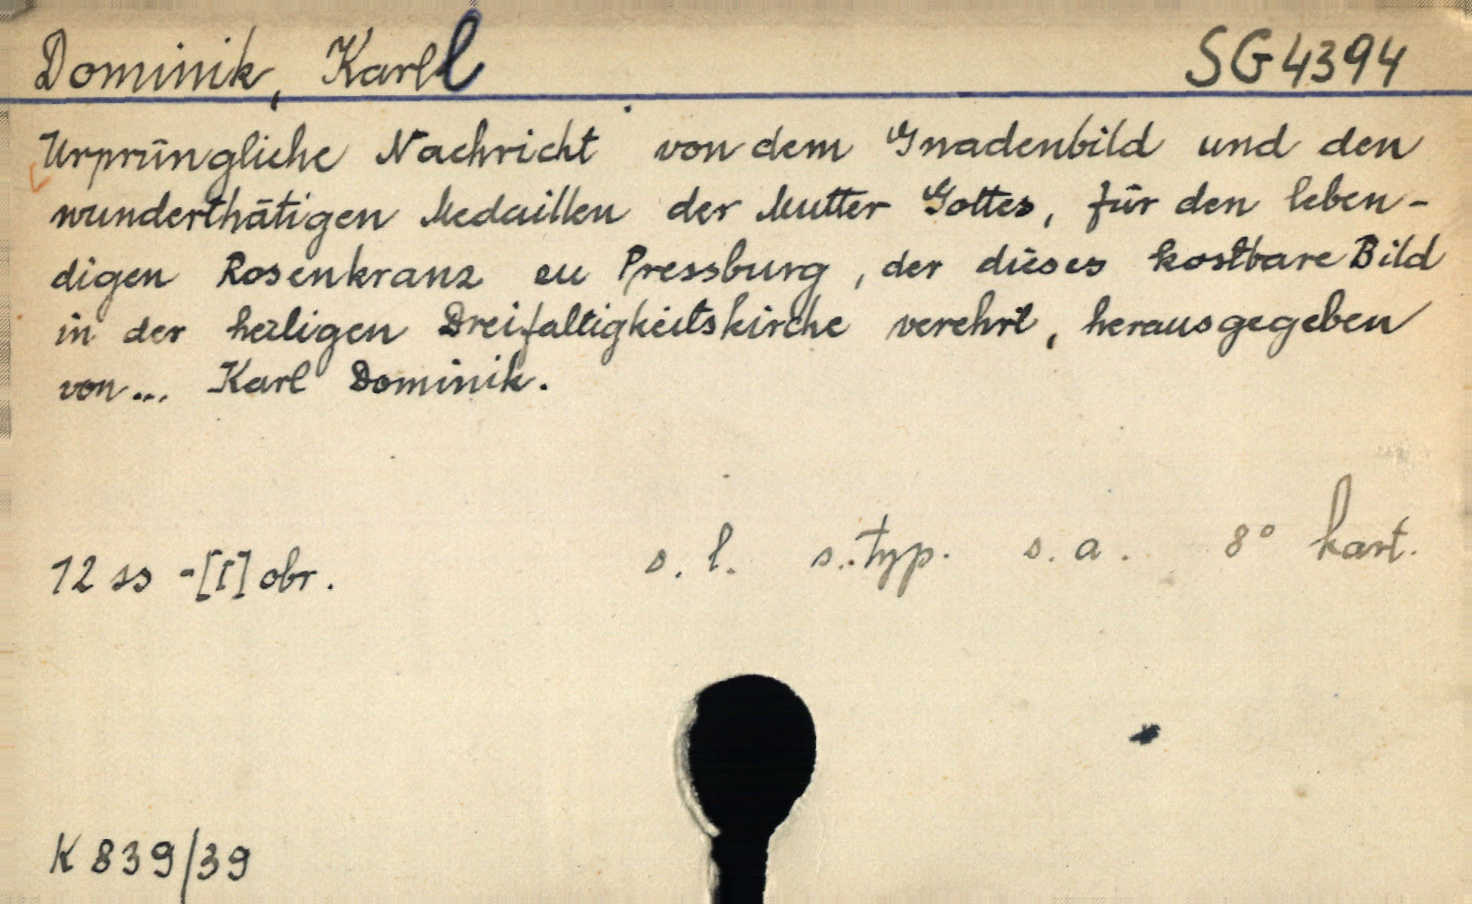 Dominik, Karl l SG 4394
Urprüngliche Nachricht von dem Gnadenbild und den
wunderthätigen Medaillen der Mutter Gottes, für den leben-
digen Rosenkranz zu Pressburg, der dieses kostbare Bild
in der heiligen Dreifaltigkeitskirche verehrt, herausgegeben
von... Karl Dominik.
12 ss -[I] obr. s. l. s. typ. s. a. 8° kart.
K 839/39